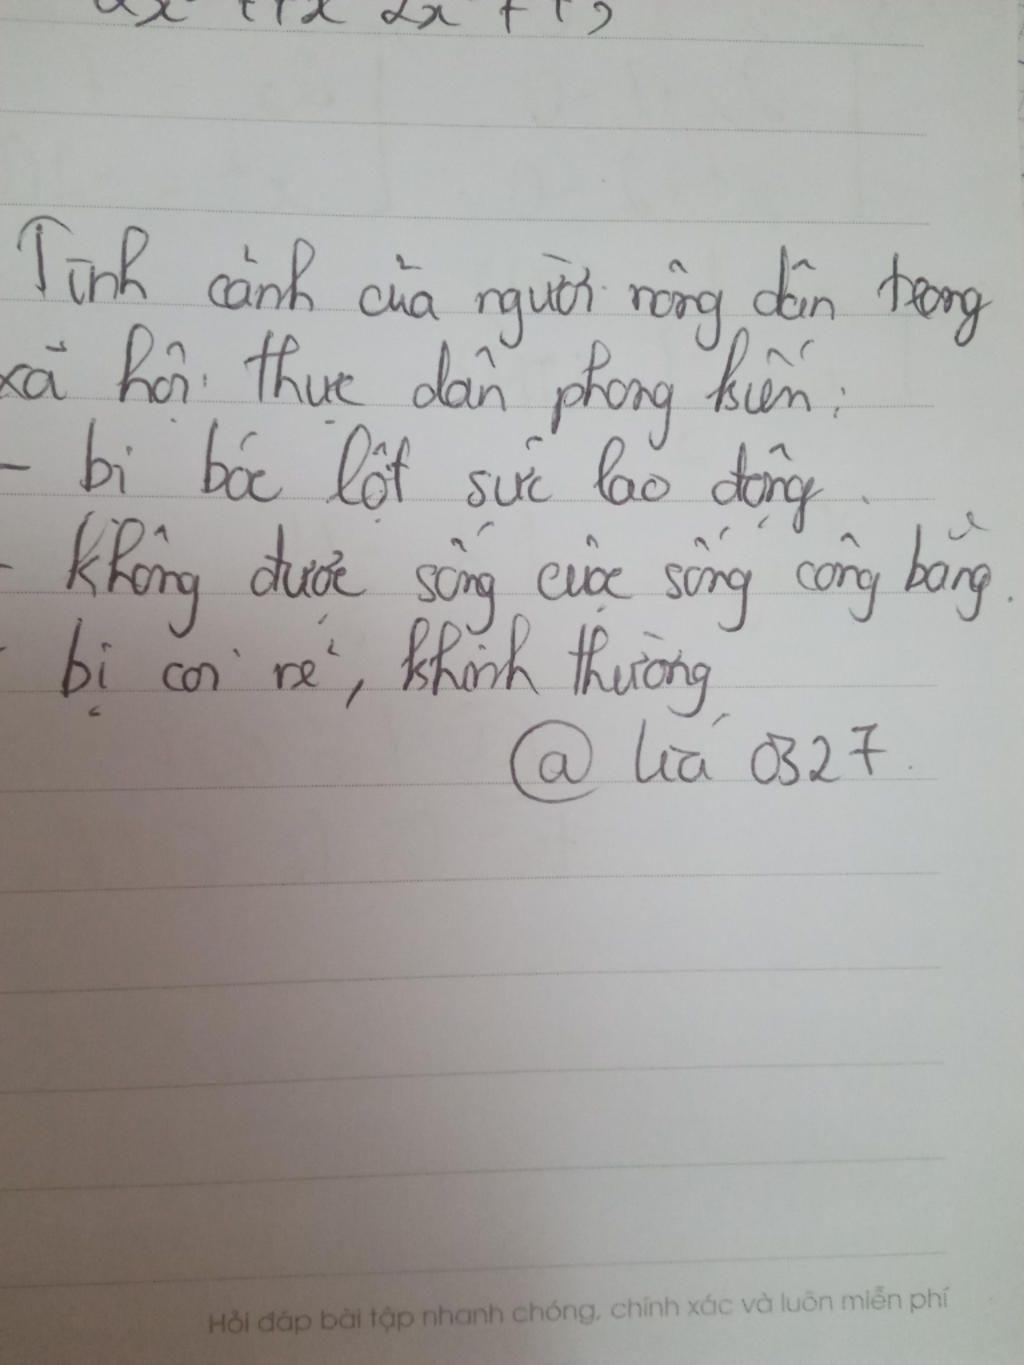 Tình cảnh của người nông dân trong
xã hội thực dân phong kiến:
- bị bóc lột sức lao động.
- không được sống cuộc sống công bằng.
- bị coi rẻ, khinh thường
@ 0327
Hỏi đáp bài tập nhanh chóng, chính xác và luôn miễn phí